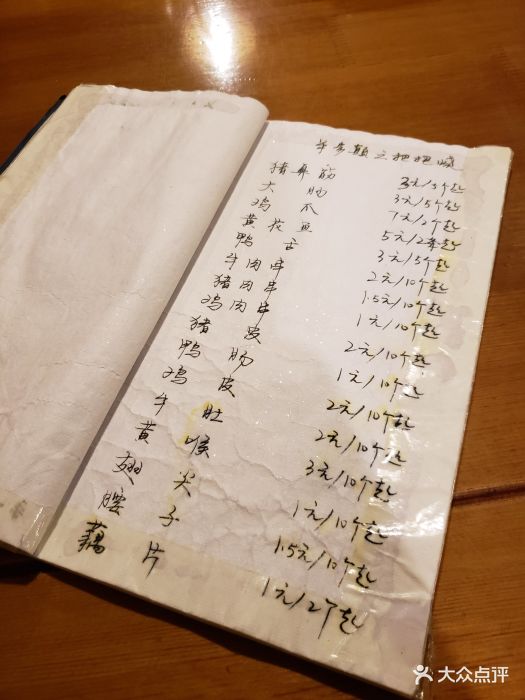 之把把烧
猪鼻筋 3元/5个起
大肠 3元/5个起
鸡爪 7元/2个起
黄花鱼 5元/2条起
鸭舌 3元/5个起
牛肉串 2元/10个起
猪肉串 1.5元/10个起
鸡肉串 1元/10个起
猪皮 2元/10个起
鸭肠 1元/10个起
鸡皮 2元/10个起
牛肚 2元/10个起
黄喉 3元/10个起
翅尖 1元/10个起
腰子 1.5元/10个起
藕片 1元/2个起
大众点评